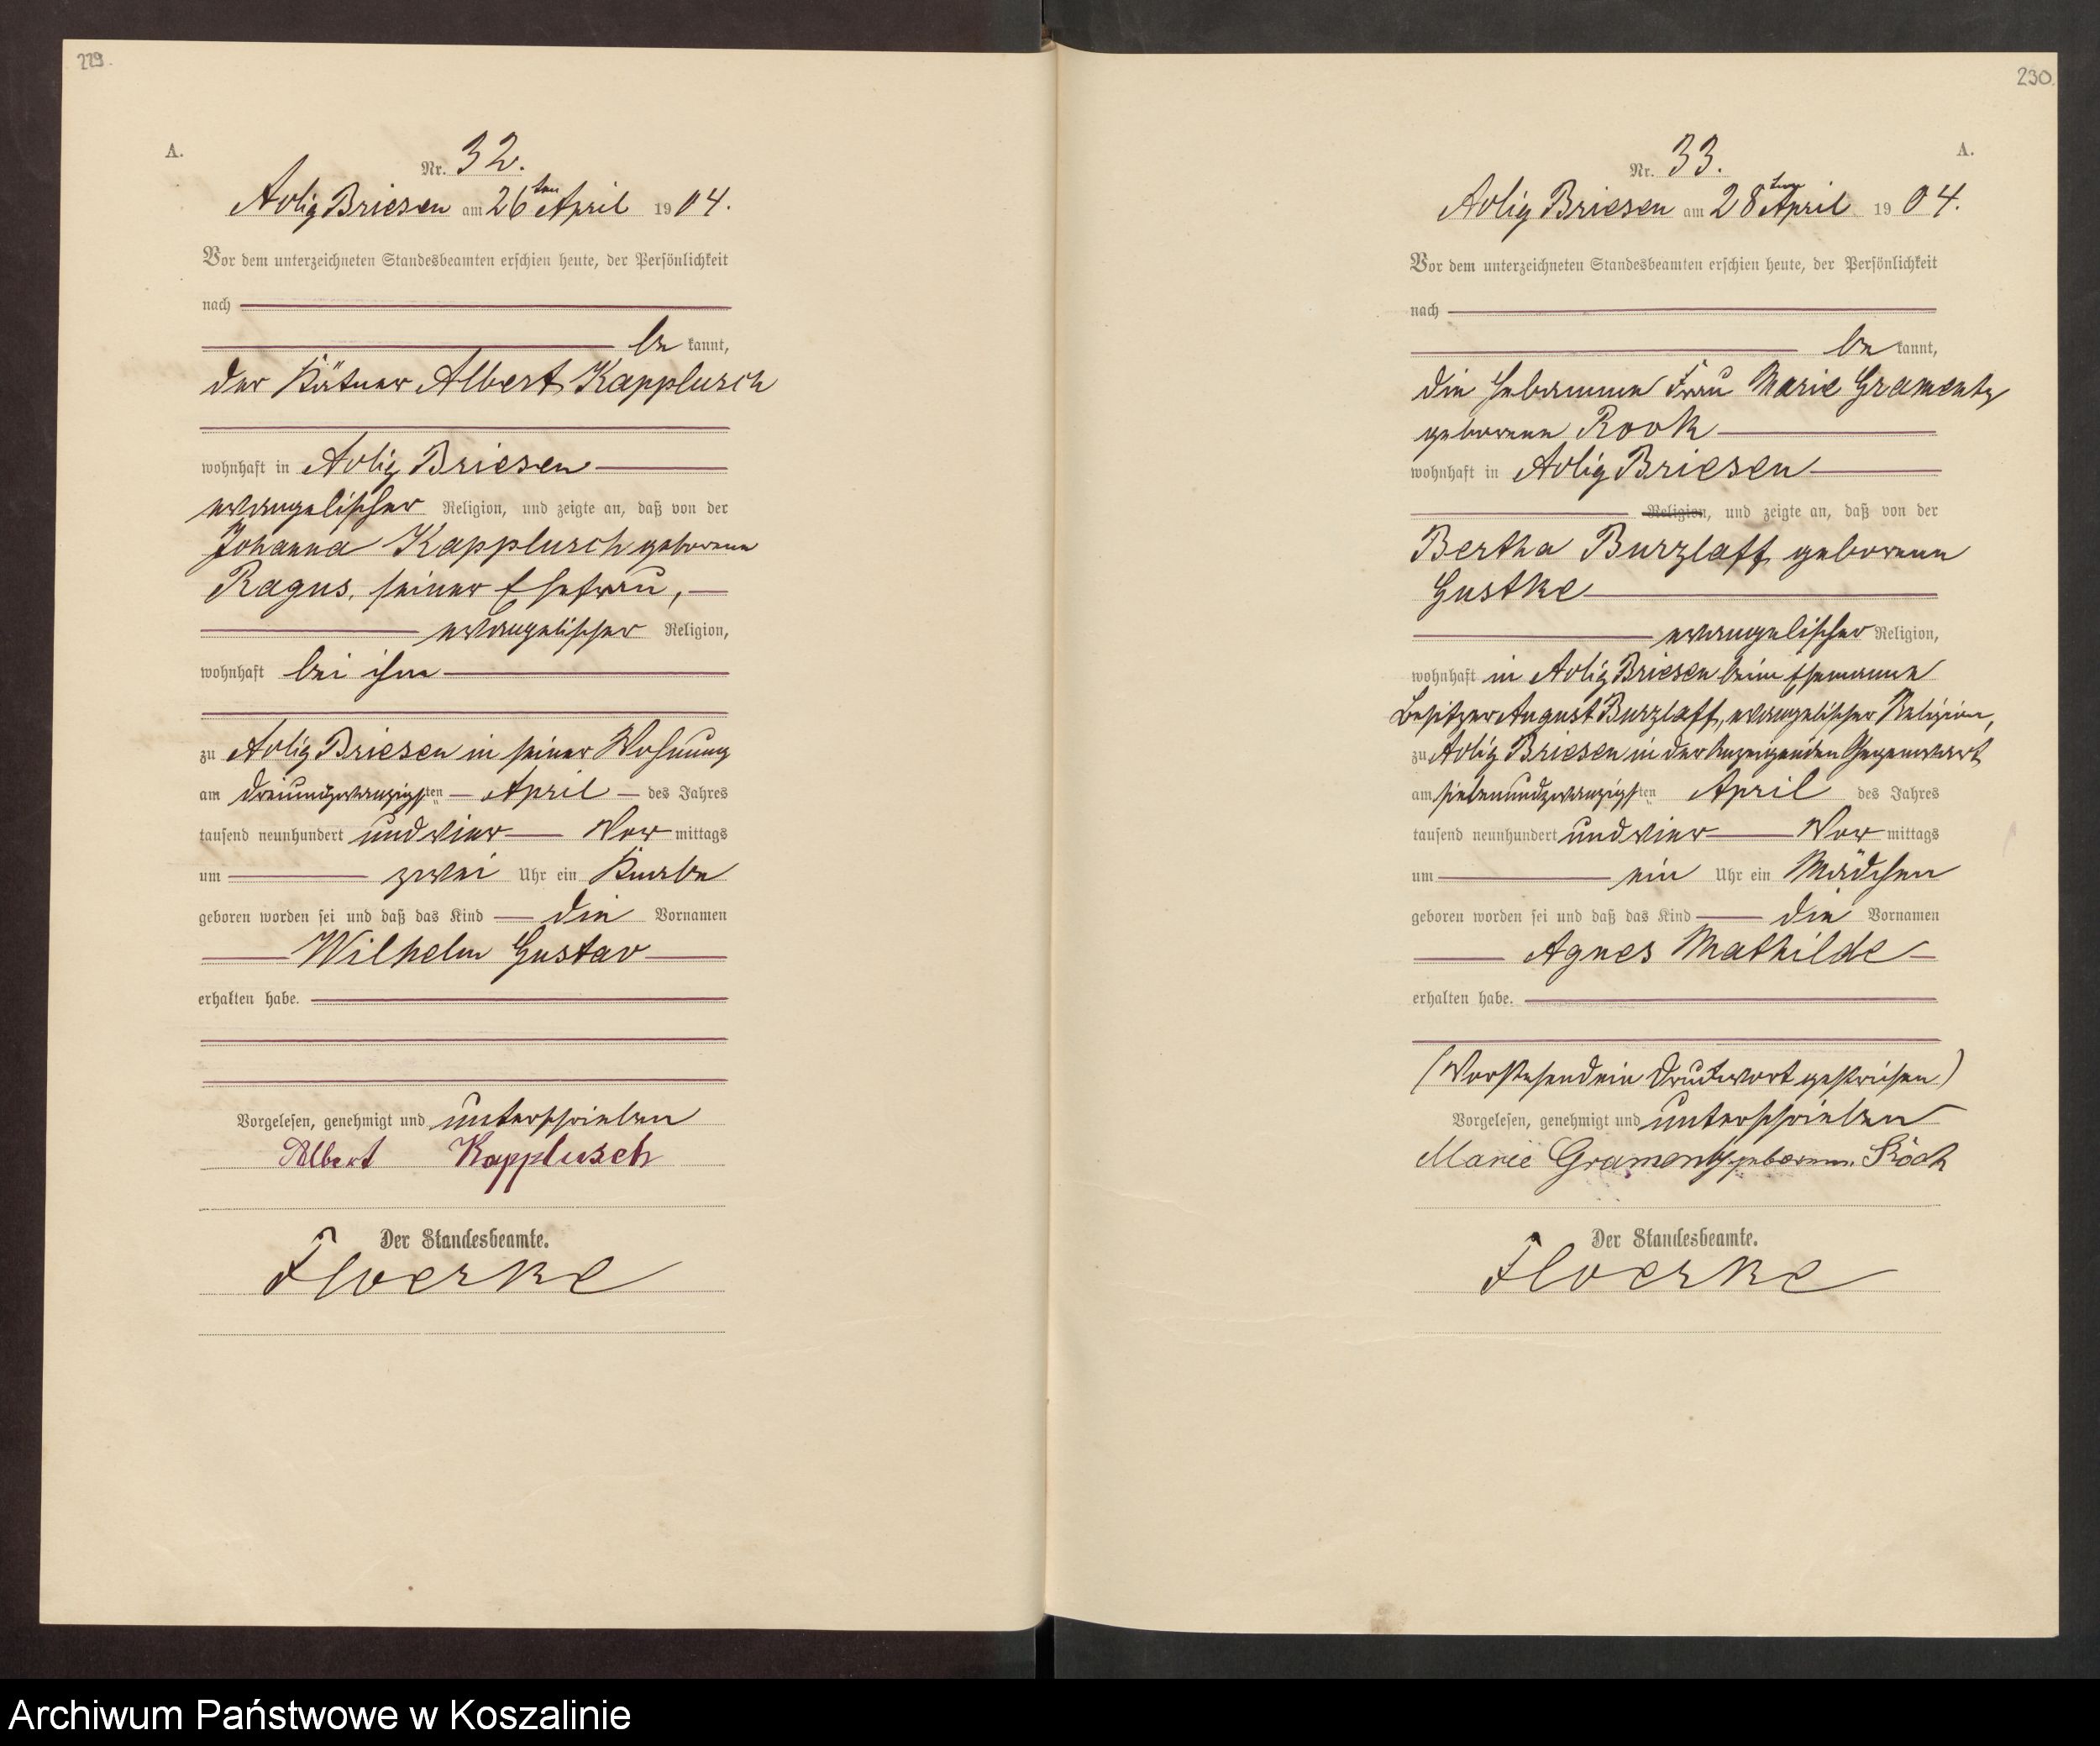 229.
A.
Nr. 32.
Adlig Briesen am 26ten April 1904.
Vor dem unterzeichneten Standesbeamten erschien heute, der Persönlichkeit
nach
be kannt,
der Kätner Albert Kapplusch
wohnhaft in Adlig Briesen
evangelischer Religion, und zeigte an, daß von der
Johanna Kapplusch geborene
Ragus, seiner Ehefrau,
evangelischer Religion,
wohnhaft bei ihm
zu Adlig Briesen in seiner Wohnung
am dreiundzwanzigsten April des Jahres
tausend neunhundert und vier Vor mittags
um zwei Uhr ein Knabe
geboren worden sei und daß das Kind die Vornamen
Wilhelm Gustav
erhalten habe.
Vorgelesen, genehmigt und unterschrieben
Albert Kapplusch
Der Standesbeamte.
Floerke
230.
A.
Nr. 33.
Adlig Briesen am 28ten April 1904.
Vor dem unterzeichneten Standesbeamten erschien heute, der Persönlichkeit
nach
be kannt,
die Hebamme Frau Marie Gramentz
geborene Rook
wohnhaft in Adlig Briesen
Religion, und zeigte an, daß von der
Bertha Burzlaff geborene
Gustke
evangelischer Religion,
wohnhaft in Adlig Briesen beim Ehemanne
Besitzer August Burzlaff, evangelischer Religion,
zu Adlig Briesen in der Anzeigenden Gegenwart
am siebenundzwanzigsten April des Jahres
tausend neunhundert und vier Vor mittags
um ein Uhr ein Mädchen
geboren worden sei und daß das Kind die Vornamen
Agnes Mathilde
erhalten habe.
(Vorstehend ein Druckwort gestrichen)
Vorgelesen, genehmigt und unterschrieben
Marie Gramentz geborene
Der Standesbeamte.
Floerke
Archiwum Państwowe w Koszalinie